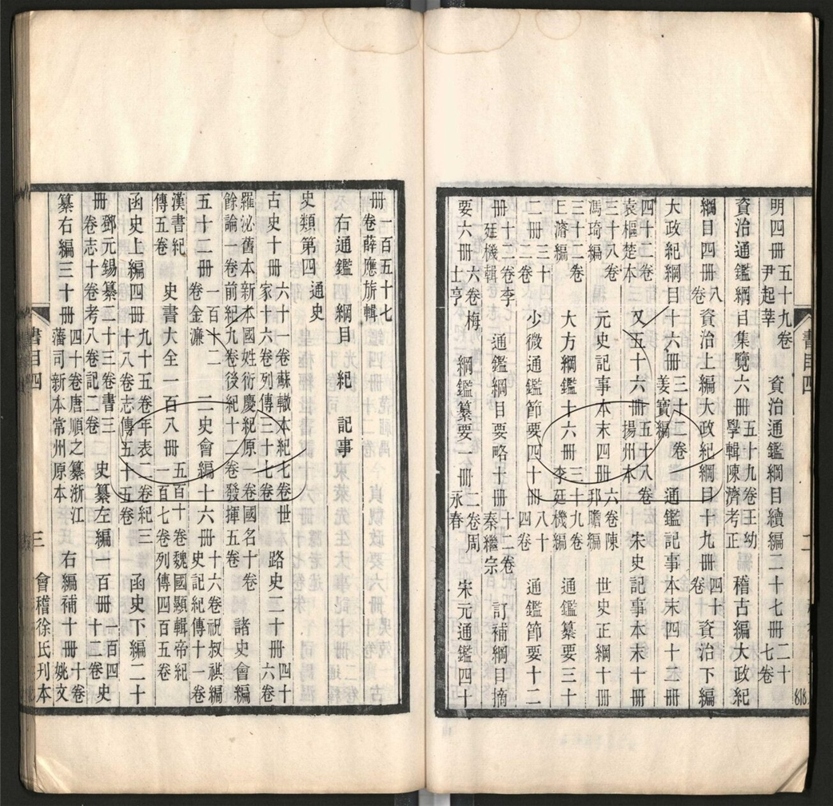 明四冊五十九卷尹起莘 資治通鑑綱目續編二十七冊二十七卷
資治通鑑綱目集覽六冊五十九卷王幼學輯陳濟考正 稽古編大政紀
綱目四冊八卷 資治上編大政紀綱目十九冊四十卷 資治下編
大政紀綱目十六冊三十二卷姜寶編 通鑑記事本末四十二冊
四十二卷袁樞楚本 又五十六冊五十八卷揚州本 宋史記事本末十冊
三十八卷馮琦編 元史記事本末四冊六卷陳邦瞻編 世史正綱十冊
三十二卷王濬編 大方綱鑑十六冊三十九卷李廷機編 通鑑纂要三十
二冊三十二卷 少微通鑑節要四十冊八十四卷 通鑑節要十二
冊十二卷李廷機輯 通鑑綱目要略十冊十二卷秦繼宗 訂補綱目摘
要六冊六卷梅士亨 綱鑑纂要一冊二卷周永春 宋元通鑑四十
書目四
二
冊一百五十七卷薛應旂輯
右通鑑 綱目 紀 記事
史類第四 通史
古史十冊六十一卷蘇轍本紀七卷世家十六卷列傳三十七卷 路史二十冊四十六卷
羅泌舊本新本國姓衍慶紀原一卷國名十卷餘論一卷前紀九卷後紀十二卷發揮五卷 諸史會編
五十二冊一百十二卷金濂 二史會編十六冊十六卷祝叔祺編史記紀傳十一卷
漢書紀傳五卷 史書大全一百八冊五百十卷魏國顯輯帝紀一百七卷列傳四百五卷
函史上編四冊九十五卷年表二卷紀三十八卷志傳五十五卷 函史下編二十
冊卷志十卷考八卷記二卷鄧元錫纂二十三卷書三 史纂左編一百冊一百四十二卷史
纂右編三十冊四十卷唐順之纂浙江藩司新本常州原本 右編補十冊十卷姚文
書目四
三
會稽徐氏刊本